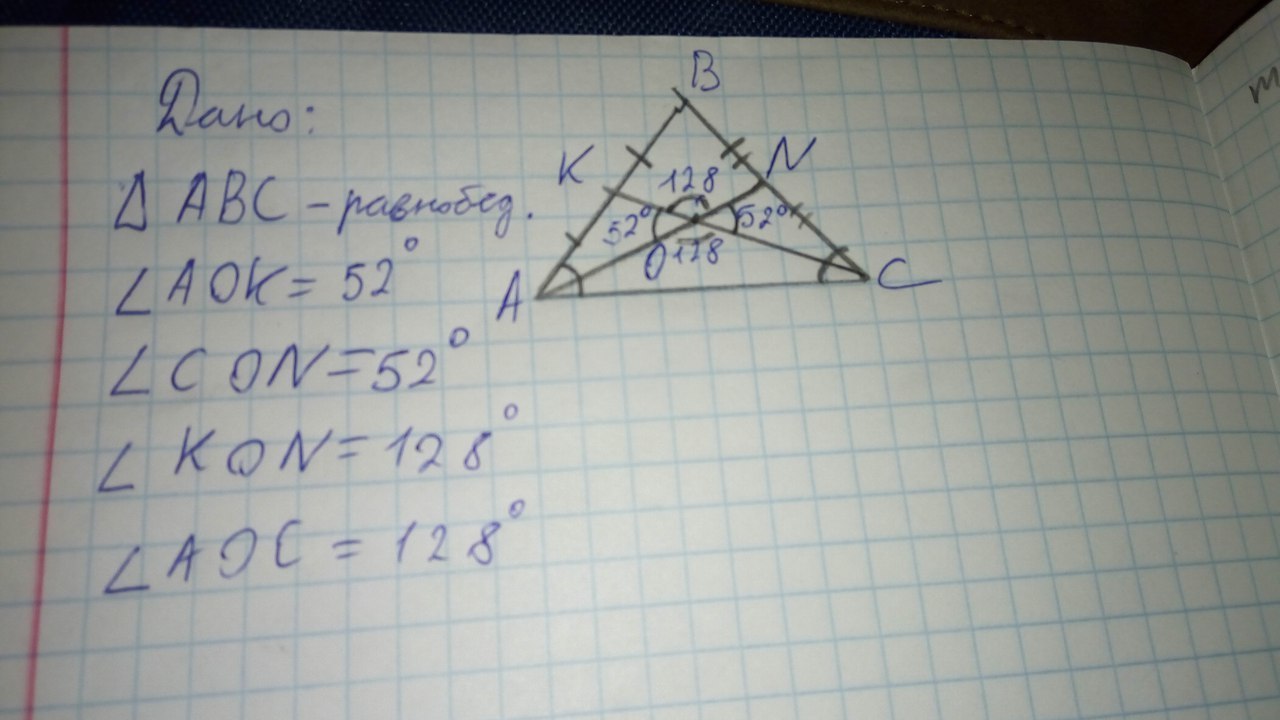 Дано:
Δ ABC – равнобед.
∠ AOK = 52°
∠ CON = 52°
∠ KON = 128°
∠ AOC = 128°
B
K
N
128
52°
52°
O
128
A
C
m